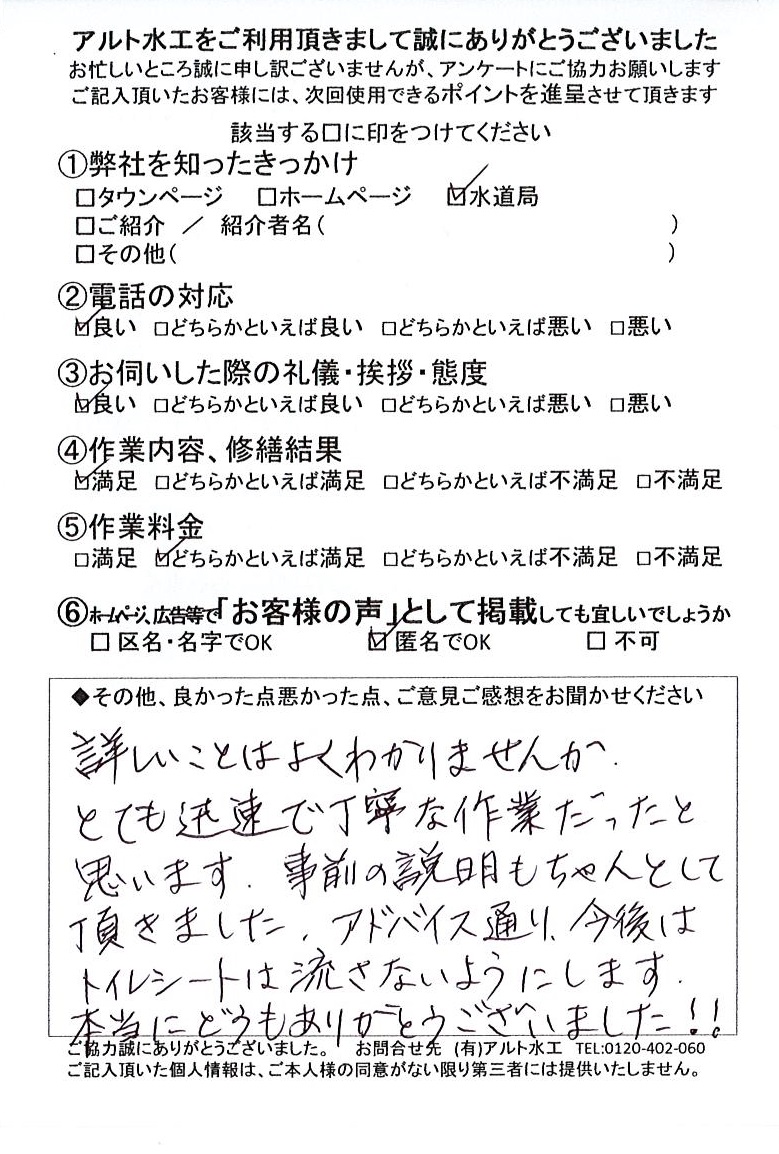 アルト水工をご利用頂きまして誠にありがとうございました
お忙しいところ誠に申し訳ございませんが、アンケートにご協力お願いします
ご記入頂いたお客様には、次回使用できるポイントを進呈させて頂きます
該当する□に印をつけてください
①弊社を知ったきっかけ
□タウンページ □ホームページ ☑水道局
□ご紹介 ／ 紹介者名( )
□その他( )
②電話の対応
☑良い □どちらかといえば良い □どちらかといえば悪い □悪い
③お伺いした際の礼儀・挨拶・態度
☑良い □どちらかといえば良い □どちらかといえば悪い □悪い
④作業内容、修繕結果
☑満足 □どちらかといえば満足 □どちらかといえば不満足 □不満足
⑤作業料金
□満足 ☑どちらかといえば満足 □どちらかといえば不満足 □不満足
⑥ホームページ、広告等で「お客様の声」として掲載しても宜しいでしょうか
□ 区名・名字でOK ☑匿名でOK □ 不可
◆その他、良かった点悪かった点、ご意見ご感想をお聞かせください
詳しいことはよくわかりませんが、
とても迅速で丁寧な作業だったと
思います。事前の説明もちゃんとして
頂きました。アドバイス通り、今後は
トイレシートは流さないようにします。
本当にどうもありがとうございました!!
ご協力誠にありがとうございました。 お問合せ先 (有)アルト水工 TEL:0120-402-060
ご記入頂いた個人情報は、ご本人様の同意がない限り第三者には提供いたしません。